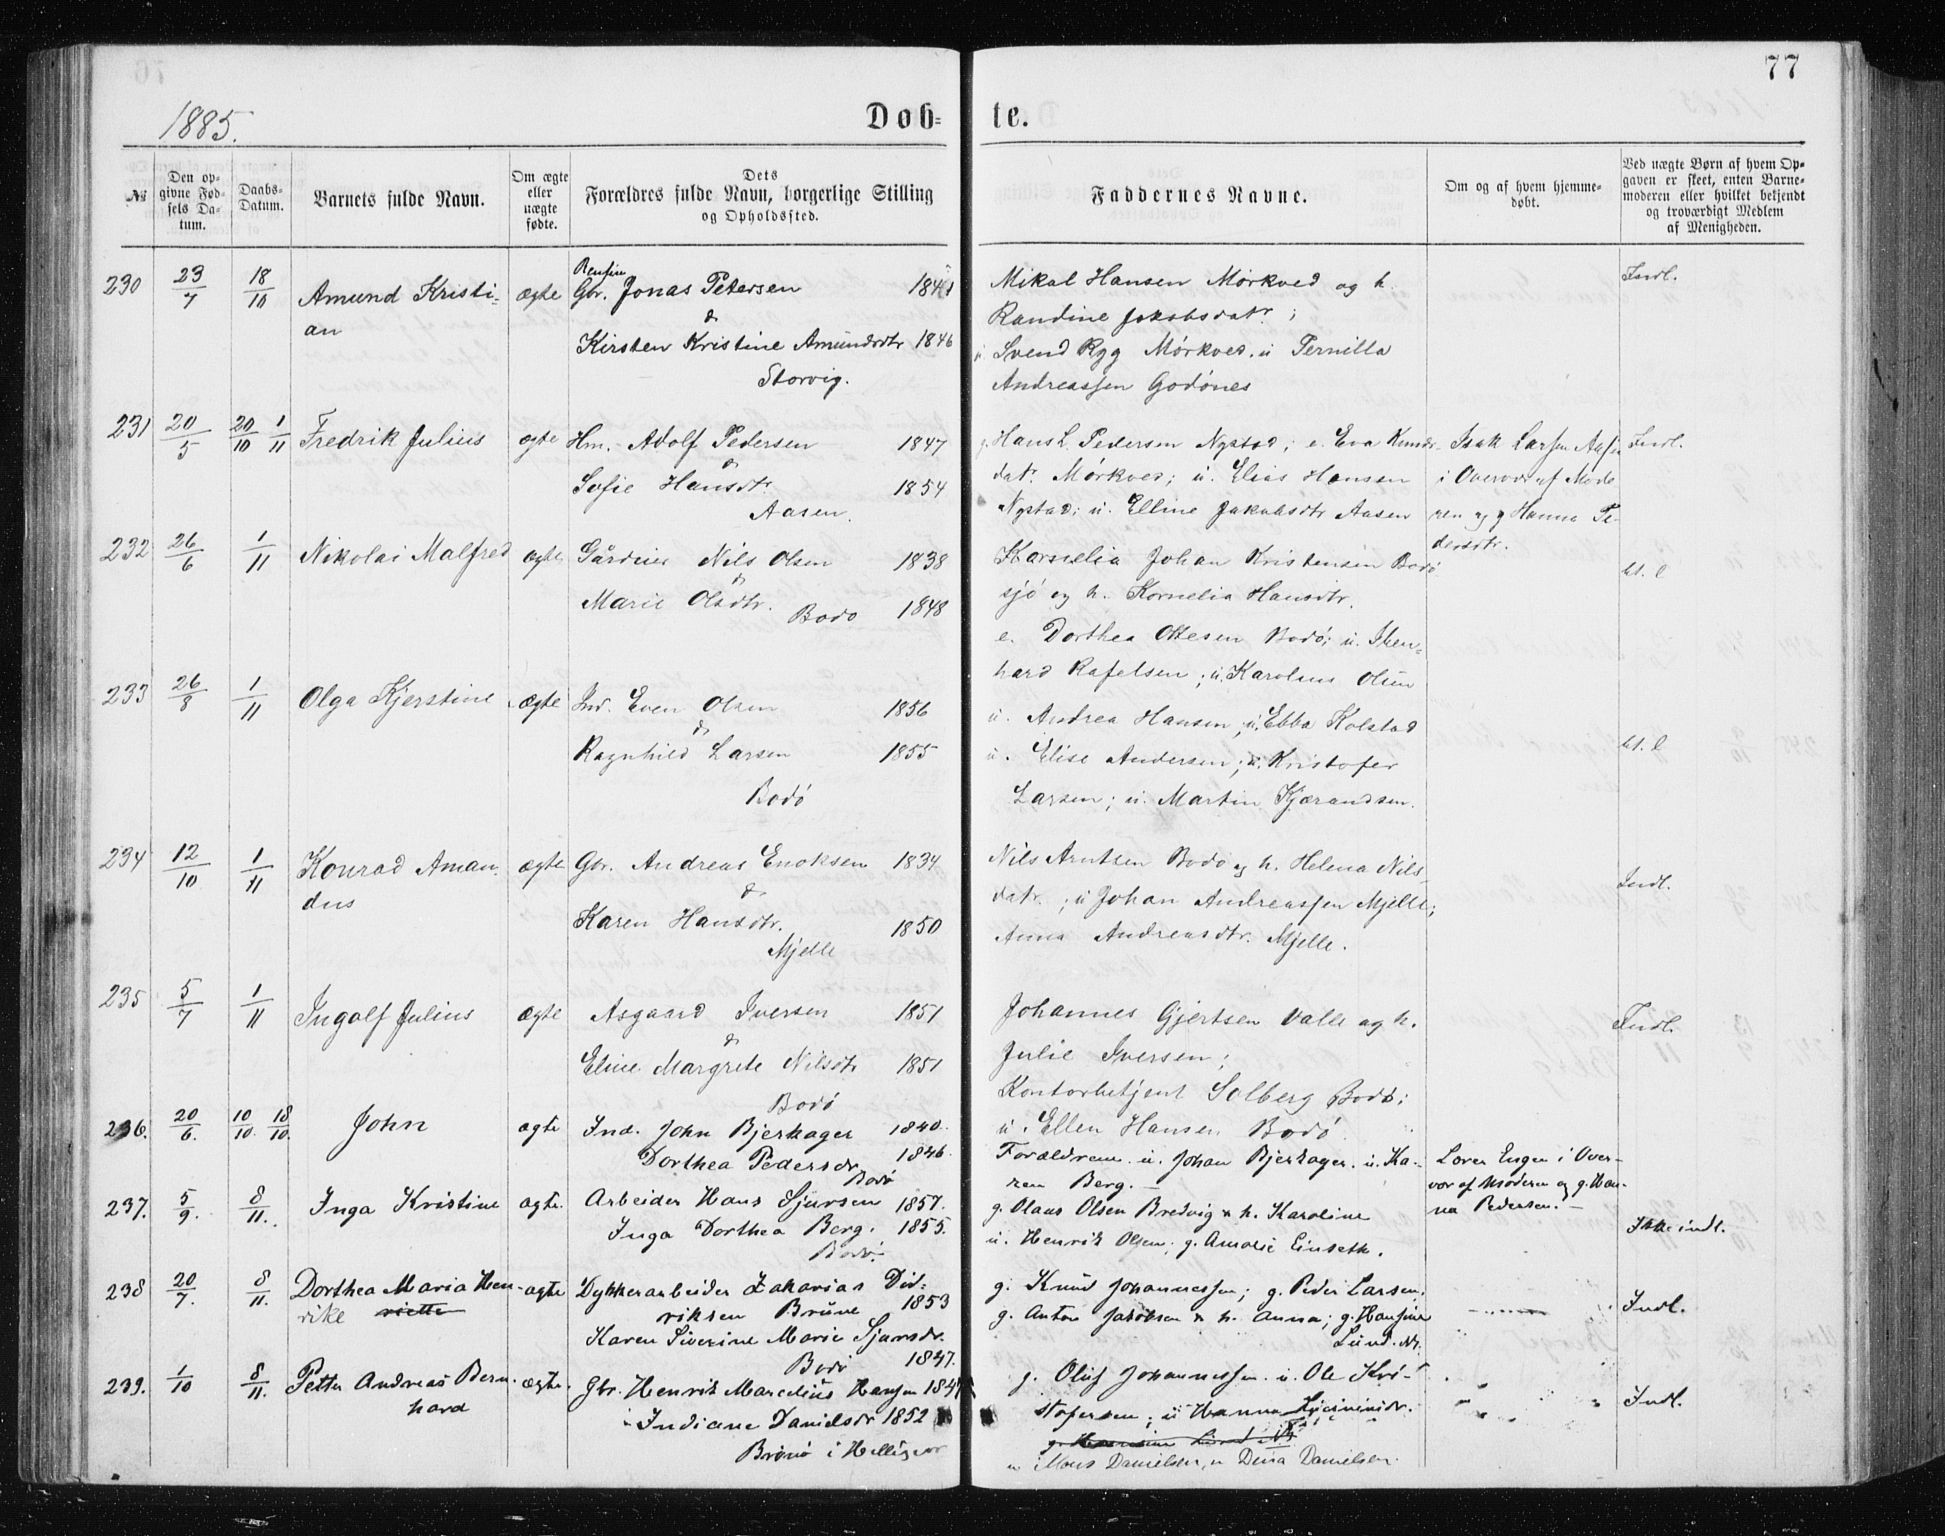 77
1885.
Døb-
te.
№
Den op-
givne Fød-
sels Da-
tum.
Daabs-
Datum.
Barnets fulde Navn.
Om ægte
eller
uægte
fødte.
Dets
Forældres fulde Navn, borgerlige Stilling
og Opholdssted.
Faddernes Navne.
Om og af hvem hjemme-
døbt.
Ved uægte Børn af hvem Op-
gaven er skeet, enten Barne-
moderen eller hvilket bekjendt
og troværdigt Medlem
af Menigheden.
230 23/7 18/10 Amund Kristi-
an
ægte
Gbr. Jonas Petersen
&
Kirsten Kristine Amundsdtr 1846
Storvig.
Mikal Hansen Mørkved og h.
Randine Jakobsdatr;
Svend Ryg Mørkved. u Pernilla
Andreassen Godønes
Indl.
231 20/5 20/10 1/11 Fredrik Julius ægte
Hm. Adolf Pedersen 1847
&
Sofie Hansdtr. 1854
Aasen.
Hans L. Pedersen Nystad; e. Eva
datr Mørkved; u. Elias Hansen
Nystad; u. Elline Jakobsdtr Aasen
Isak Larsen Aasen
i Overvær af Mode
ren og g Hanna Pe-
dersdtr.
Indl.
232 26/6 1/11 Nikolai Malfred ægte
Nils Olsen 1838
&
Marie Olsdtr. 1848
Bodø
Johan Kristensen Bodø
sjø og h. Kornelia Hansdtr.
e. Dorthea Ottesen Bodø; u.
hard Rafelsen; u. Karoline Olsen
233 26/8 1/11 Olga Kjerstine ægte
Ind. Even Olsen 1856
&
Ragnhild Larsen 1855
Bodø
u. Andrea Hansen; u. Ebba Kolstad
u. Elise Andersen; u. Kristofer
Larsen; u. Martin Kjærandsen.
234 12/10 1/11 Konrad Aman-
dus
ægte
Gbr. Andreas Enoksen 1834
&
Karen Hansdtr. 1850
Mjelle
Nils Arntsen Bodø og h. Helena Nils-
datr; u Johan Andreassen Mjelle;
Anna Andreasdtr. Mjelle.
Indl.
235 5/7 1/11 Ingolf Julius ægte
Asgaard Iversen 1851
&
Eline Margrete Nilsdtr 1851
Bodø
Johannes Gjertsen Valle og h.
Julie Iversen;
Kontorbetjent Solberg Bodø;
u. Ellen Hansen Bodø
Indl.
236. 20/6. 10/10. 18/10. John ægte
Ind. John Bjerkager 1840.
Dorthea Pedersdr 1846.
Bodø
Forældrene. u. Johan Bjerkager. u. Ka-
ren Berg.
Engen i Over-
vær af Moderen og g. Han-
na Pedersen.
237. 5/9. 8/11. Inga Kristine ægte.
Arbeider Hans Sjursen 1857.
Inga Dorthea Berg. 1855.
Bodø.
g. Olaus Olsen Bredvig & h. Karoline
u. Henrik Olsen; g. Amalie Einseth.
Ikke indl.
238 20/7. 8/11. Dorthea Maria Hen-
rike riette
ægte
Dykkerarbeider Zakarias Did-
riksen Brune 1853
Karen Siverine Marie Sjursdr.
Bodø 1847.
g. Knud Johannessen; g. Peder Larsen.
g. Anton Jakobsen & h. Anna; g. Hansine
Lund.
Indl.
239. 1/10 8/11. Petter Andreas Bern-
hard
ægte.
Gbr. Henrik Marcelius Hansen
Indiane Danielsdr 1852
i Helligvær
g. Oluf Johannessen. u. Ole Kri-
stofersen; u Hanna
u Mons Danielsen, u Dina Danielsen.
Indl.